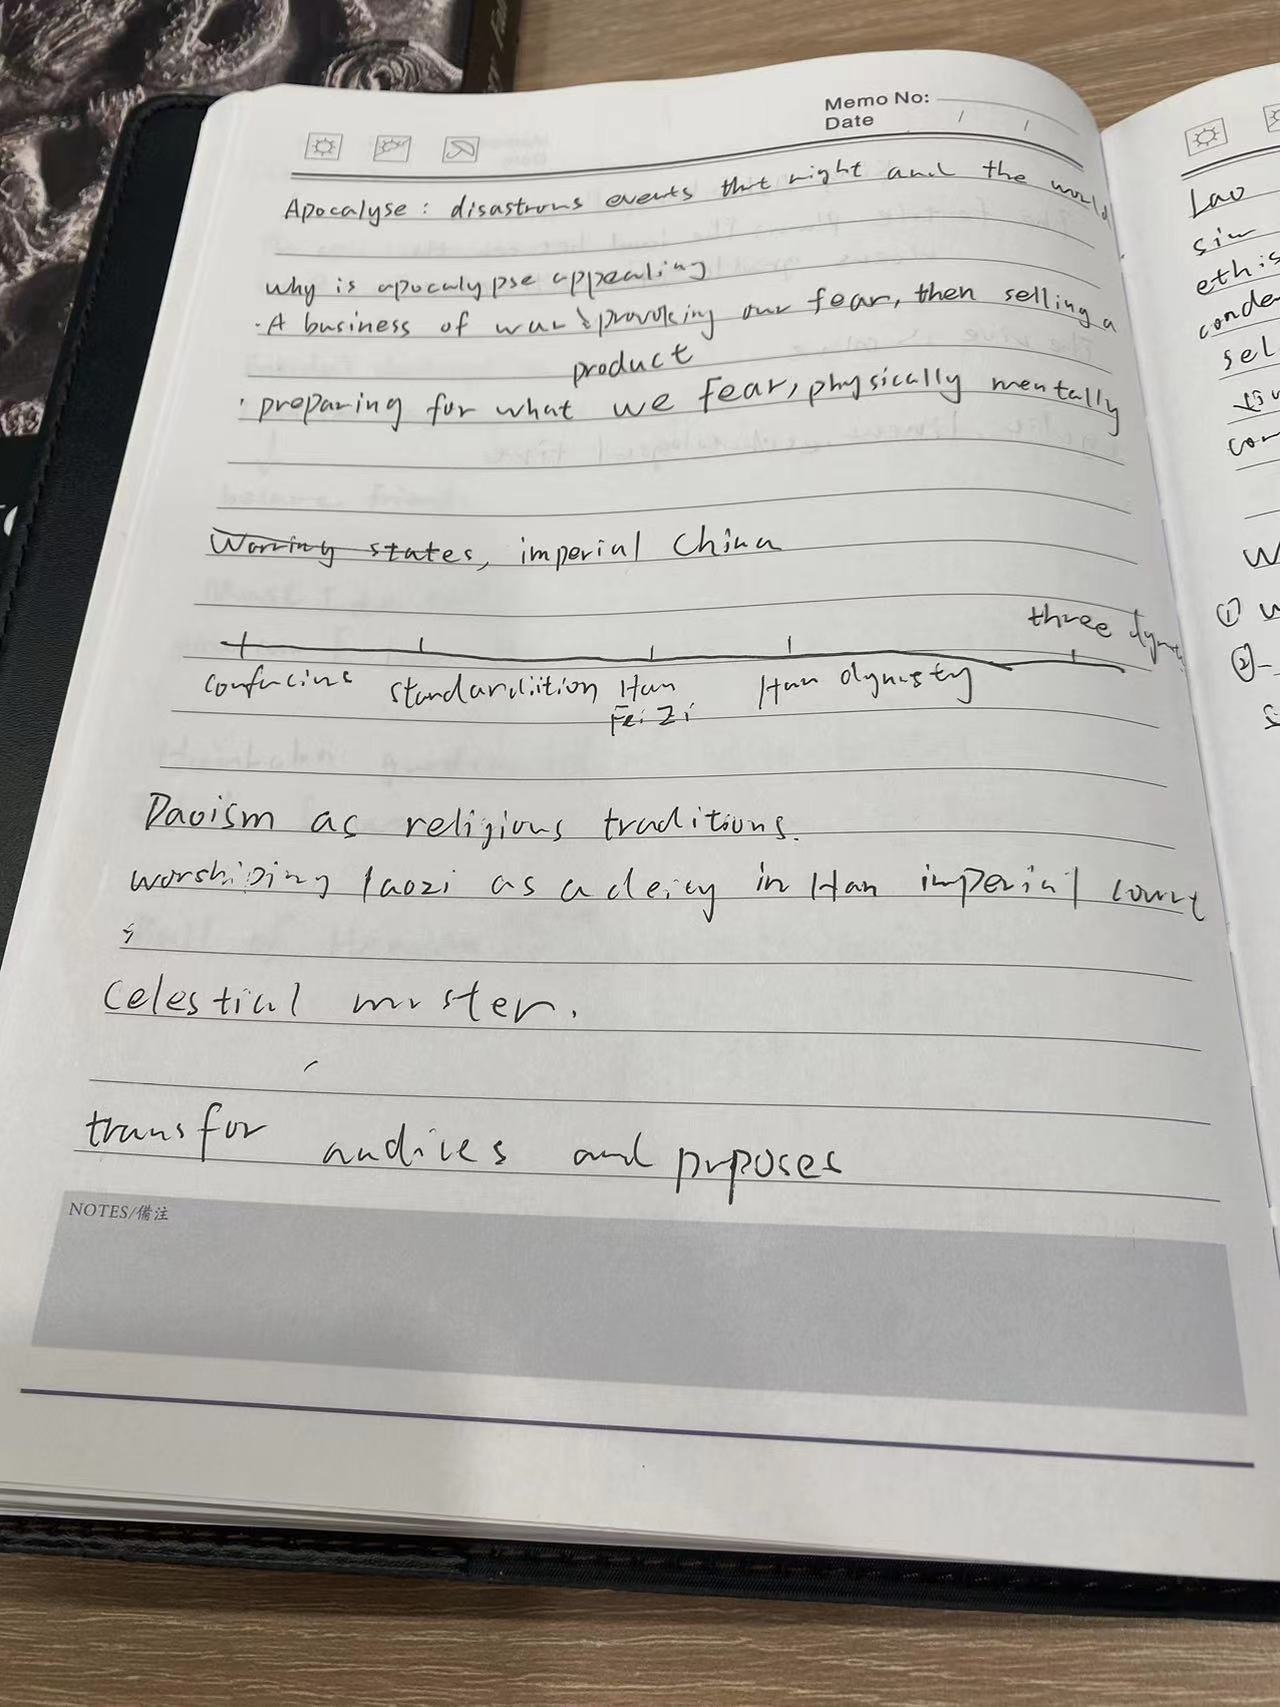 Memo No:
Date / /
Apocalyse: disastrous events that night and the world
why is apocalypse appealing
· A business of war & provoking our fear, then selling a
product
· preparing for what we fear, physically mentally
Warring states, imperial China
three
confucius standardiition Han Han dynasty
Fei Zi
Daoism as religious traditions.
worshiping laozi as a deity in Han imperial court
;
Celestial master.
transfor audices and prposes
NOTES/備注
Lao
sin
ethis
conde
sel
com
W
①
②